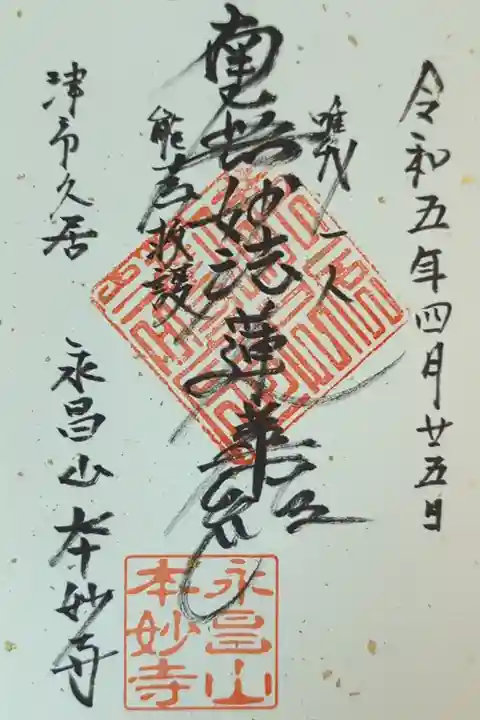 令和五年四月廿五日
唯我一人
南無妙法蓮華経
能為救護
津市久居
永昌山本妙寺
永昌山
本妙寺